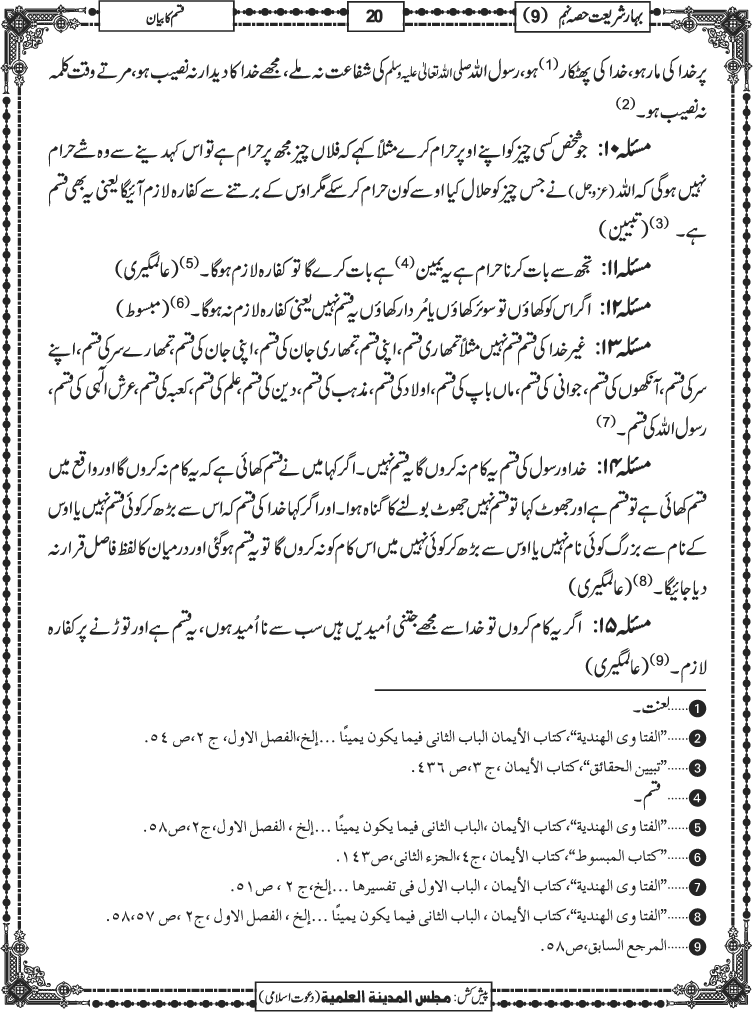 بہارِشریعت حصہ نہم (9)
20
قسم کا بیان
پر خدا کی مار ہو، خدا کی پھٹکار (1) ہو، رسول اللہ صلی اللہ تعالیٰ علیہ وسلم کی شفاعت نہ ملے، مجھے خدا کا دیدار نہ نصیب ہو، مرتے وقت کلمہ
نہ نصیب ہو۔ (2)
مسئلہ ۱۰: جو شخص کسی چیز کو اپنے اوپر حرام کرے مثلاً کہے کہ فلاں چیز مجھ پر حرام ہے تو اس کہدینے سے وہ شے حرام
نہیں ہوگی کہ اللہ (عزوجل) نے جس چیز کو حلال کیا اوسے کون حرام کرسکے مگر اوس کے برتنے سے کفارہ لازم آئیگا یعنی یہ بھی قسم
ہے۔ (3) (تبیین)
مسئلہ ۱۱: تجھ سے بات کرنا حرام ہے یہ یمین (4) ہے بات کرے گا تو کفارہ لازم ہوگا۔ (5) (عالمگیری)
مسئلہ ۱۲: اگر اس کو کھاؤں تو سوئر کھاؤں یا مُردار کھاؤں یہ قسم نہیں یعنی کفارہ لازم نہ ہوگا۔ (6) (مبسوط)
مسئلہ ۱۳: غیر خدا کی قسم قسم نہیں مثلاً تمھاری قسم، اپنی قسم، تمھاری جان کی قسم، اپنی جان کی قسم، تمھارے سر کی قسم، اپنے
سر کی قسم، آنکھوں کی قسم، جوانی کی قسم، ماں باپ کی قسم، اولاد کی قسم، مذہب کی قسم، دین کی قسم، علم کی قسم، کعبہ کی قسم، عرش الٰہی کی قسم،
رسول اللہ کی قسم۔ (7)
مسئلہ ۱۴: خدا و رسول کی قسم یہ کام نہ کروں گا یہ قسم نہیں۔ اگر کہا میں نے قسم کھائی ہے کہ یہ کام نہ کروں گا اور واقع میں
قسم کھائی ہے تو قسم ہے اور جھوٹ کہا تو قسم نہیں جھوٹ بولنے کا گناہ ہوا۔ اور اگر کہا خدا کی قسم کہ اس سے بڑھ کر کوئی قسم نہیں یا اوس
کے نام سے بزرگ کوئی نام نہیں یا اوس سے بڑھ کر کوئی نہیں میں اس کام کو نہ کروں گا تو یہ قسم ہوگئی اور درمیان کا لفظ فاصل قرار نہ
دیا جائیگا۔ (8) (عالمگیری)
مسئلہ ۱۵: اگر یہ کام کروں تو خدا سے مجھے جتنی اُمیدیں ہیں سب سے نا اُمید ہوں، یہ قسم ہے اور توڑنے پر کفارہ
لازم۔ (9) (عالمگیری)
1 ......لعنت۔
2 ......”الفتاوی الهندية“، كتاب الأيمان الباب الثانى فيما يكون يمينًا ...إلخ، الفصل الاول، ج ٢، ص ٥٤.
3 ......”تبيين الحقائق“، كتاب الأيمان ، ج ٣، ص ٤٣٦.
4 ...... قسم۔
5 ......”الفتاوی الهندية“، كتاب الأيمان ،الباب الثانى فيما يكون يمينًا ...إلخ ، الفصل الاول، ج٢، ص٥٨.
6 ......”كتاب المبسوط“، كتاب الأيمان ، ج٤، الجزء الثانى، ص١٤٣.
7 ......”الفتاوی الهندية“، كتاب الأيمان ، الباب الاول فى تفسيرها ...إلخ، ج ٢ ، ص٥١.
8 ......”الفتاوی الهندية“، كتاب الأيمان ، الباب الثانى فيما يكون يمينًا ...إلخ ، الفصل الاول ، ج٢ ، ص ٥٧،٥٨.
9 ......المرجع السابق، ص٥٨.
پیش کش: مجلس المدينة العلمية (دعوت اسلامی)